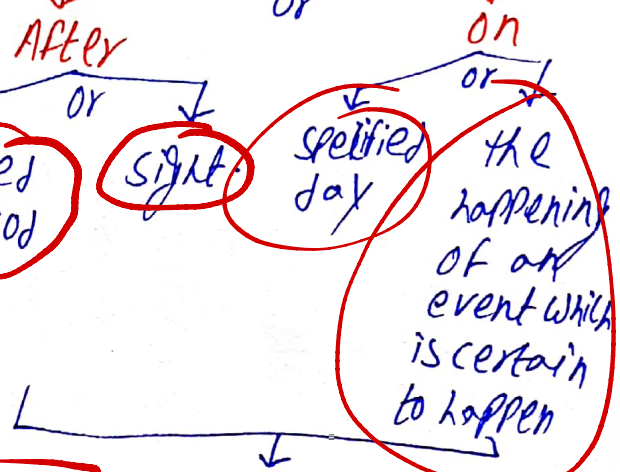 or
After
on
or
or
ed
od
sight.
specified
day
the
happening
of an
event which
is certain
to happen